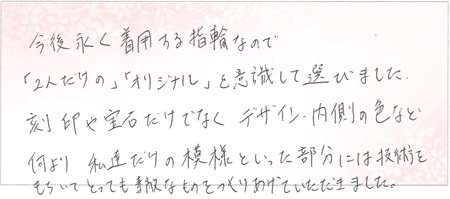 今後永く着用する指輪なので
「2人だけの」「オリジナル」を意識して選びました。
刻印や宝石だけでなく デザイン・内側の色など
何より 私達だけの模様といった部分には技術を
もちいてとっても素敵なものをつくりあげていただきました。